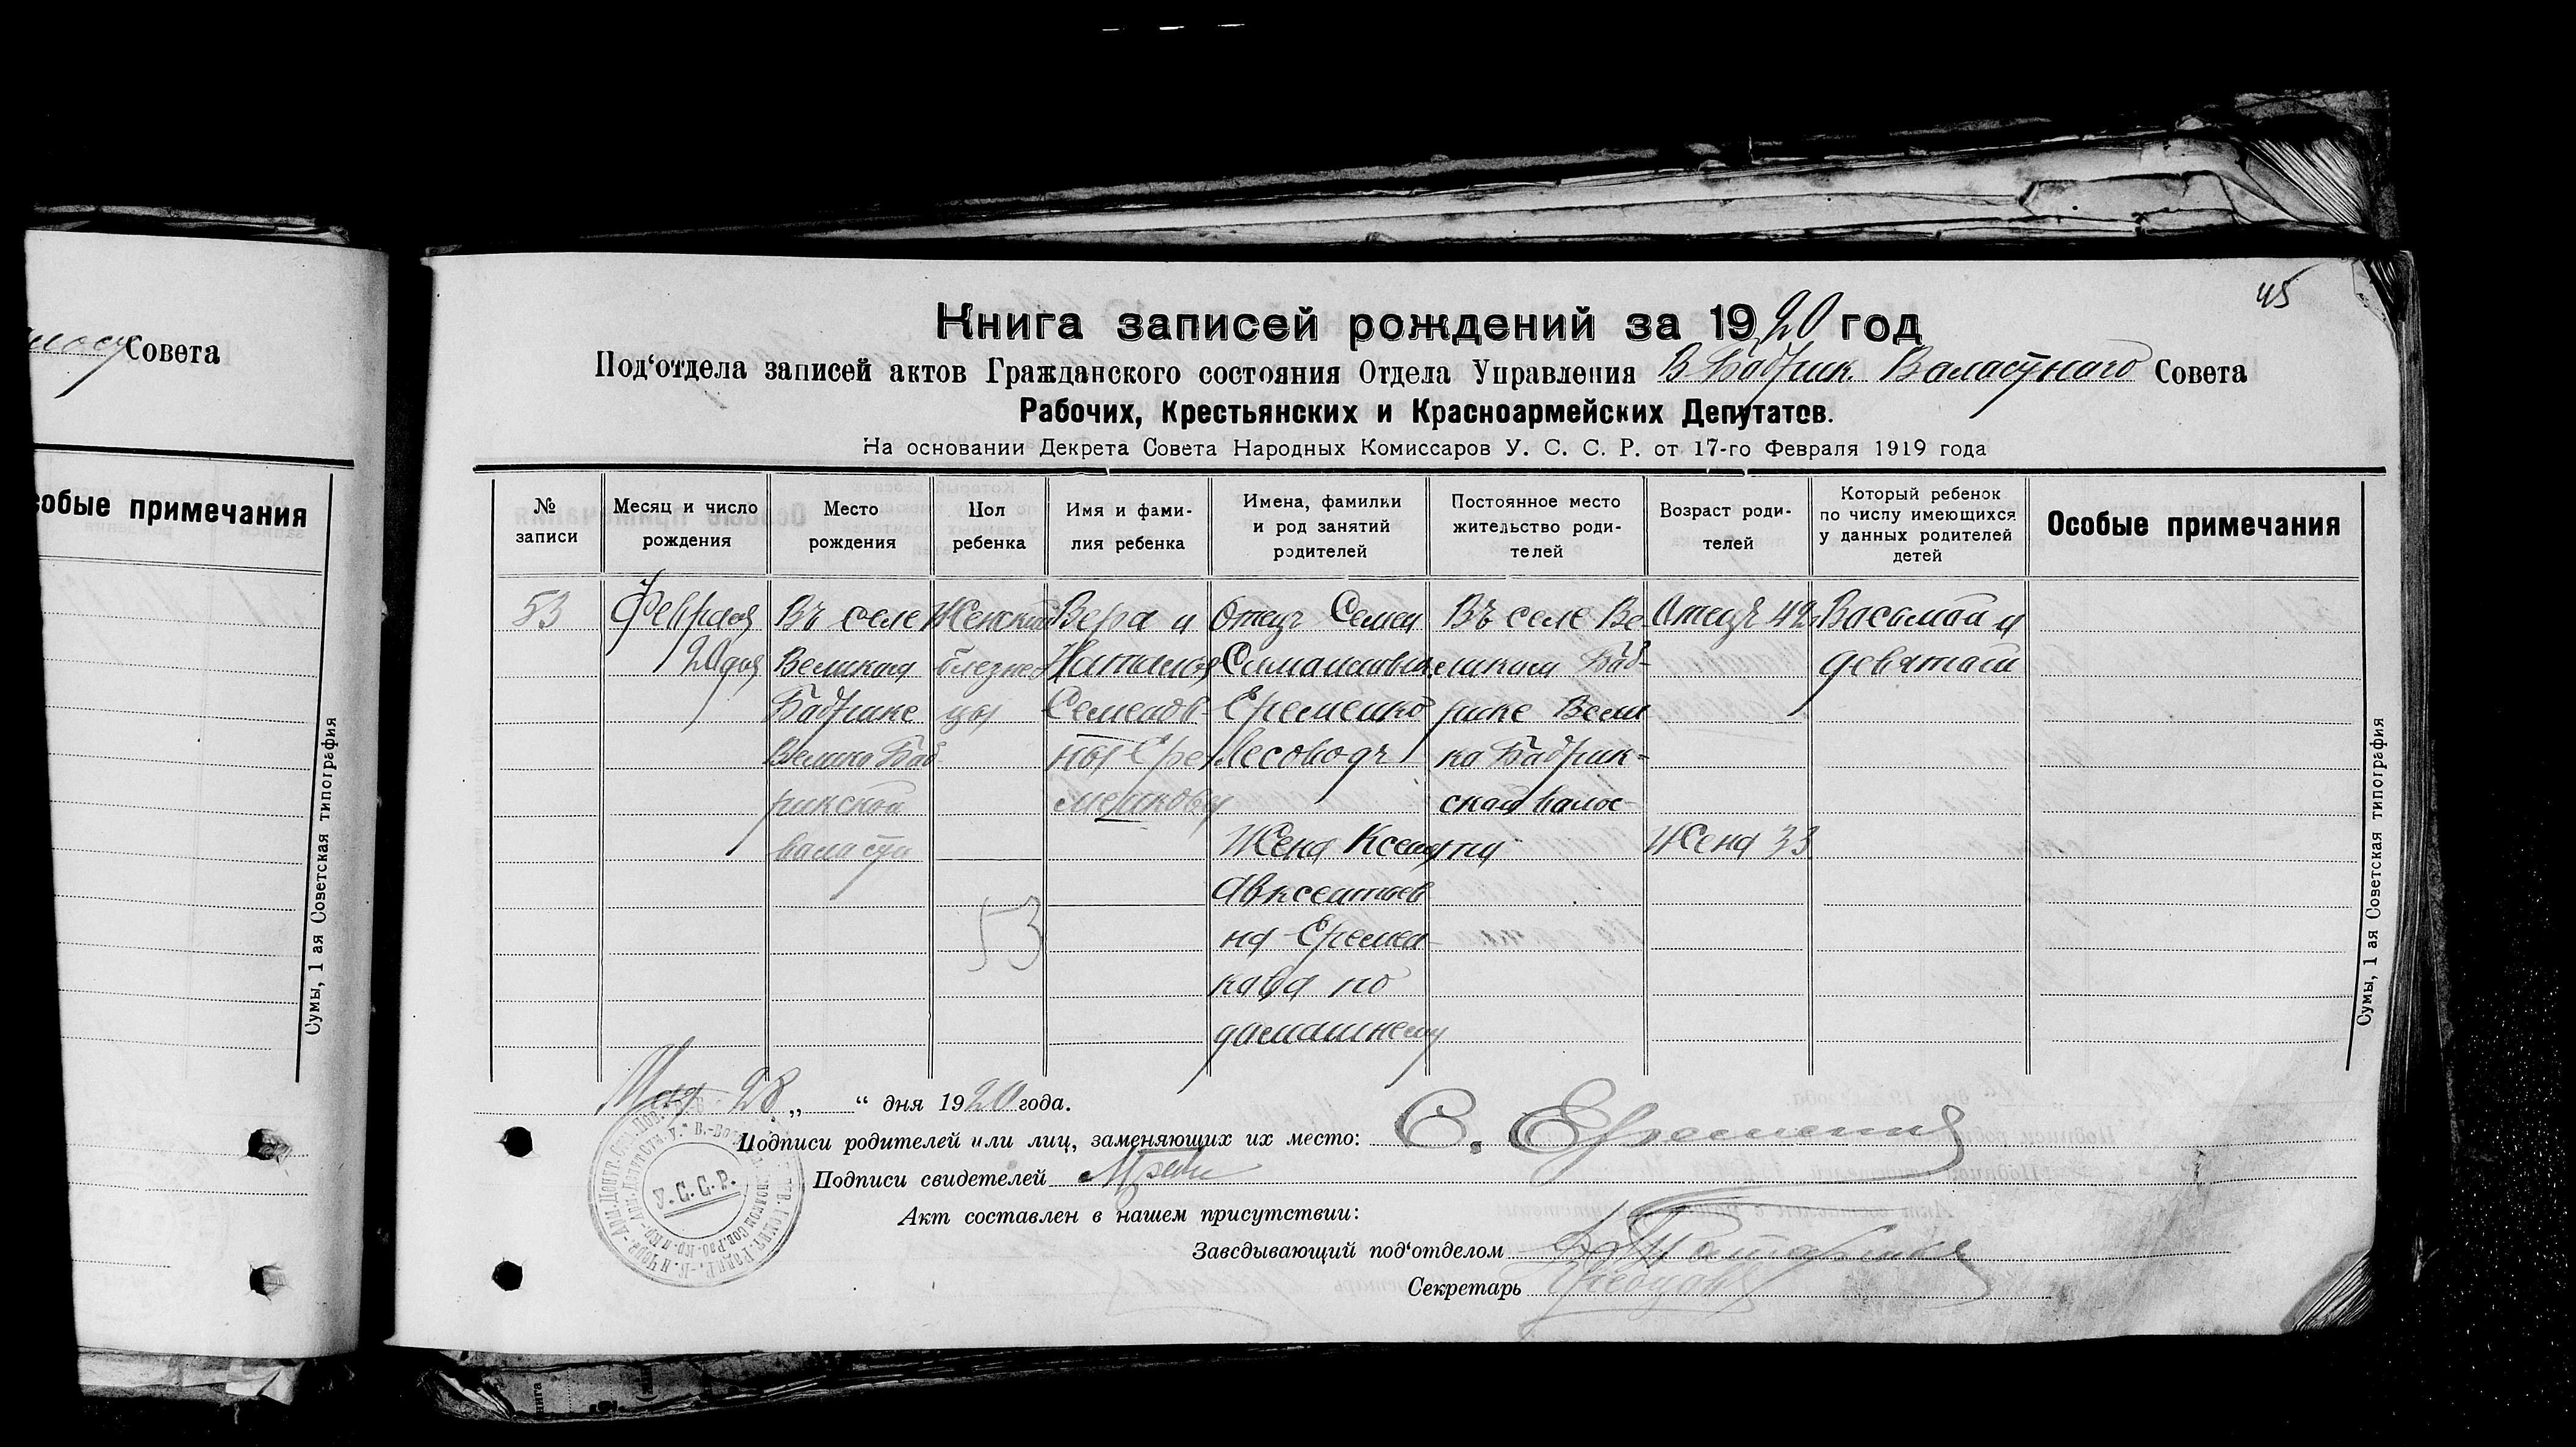 45
Совета
Книга записей рождений за 1920 год
Под‘отдела записей актов Гражданского состояния Отдела Управления В Бобрик. Валастнаго Совета
Рабочих, Крестьянских и Красноармейских Депутатов.
На основании Декрета Совета Народных Комиссаров У. С. С. Р. от 17-го Февраля 1919 года
собые примечания
№ записи
Месяц и число рождения
Место рождения
Пол ребенка
Имя и фами-
лия ребенка
Имена, фамилии и род занятий родителей
Постоянное место жительство роди-
телей
Возраст роди-
телей
Который ребенок по числу имеющихся у данных родителей детей
Особые примечания
53
Февраля
20 дня
Въ селе
Великая
Бобрике
Велико Боб
рикской
валасти
Женский
близне
цы
Вера и
Наталия
Семенов
ны Ере
менковы
Отец Семен
Еременко
Лесоводъ
Жена Ксения
Авксентьев
на Еремен
кова по
домашнему
Въ селе Ве
ликом Боб-
рике Вели
ко Бобрик-
ской валос-
ти
Отецъ 42
Жена 33
Васьмой и
девятой
53
Мая 28 „ “ дня 1920 года.
Подписи родителей или лиц, заменяющих их место: С. Еременко
Подписи свидетелей
Акт составлен в нашем присутствии:
Заведывающий под‘отделом
Секретарь
У.С.С.Р.
Сумы, 1 ая Советская типография
Сумы, 1 ая Советская типография